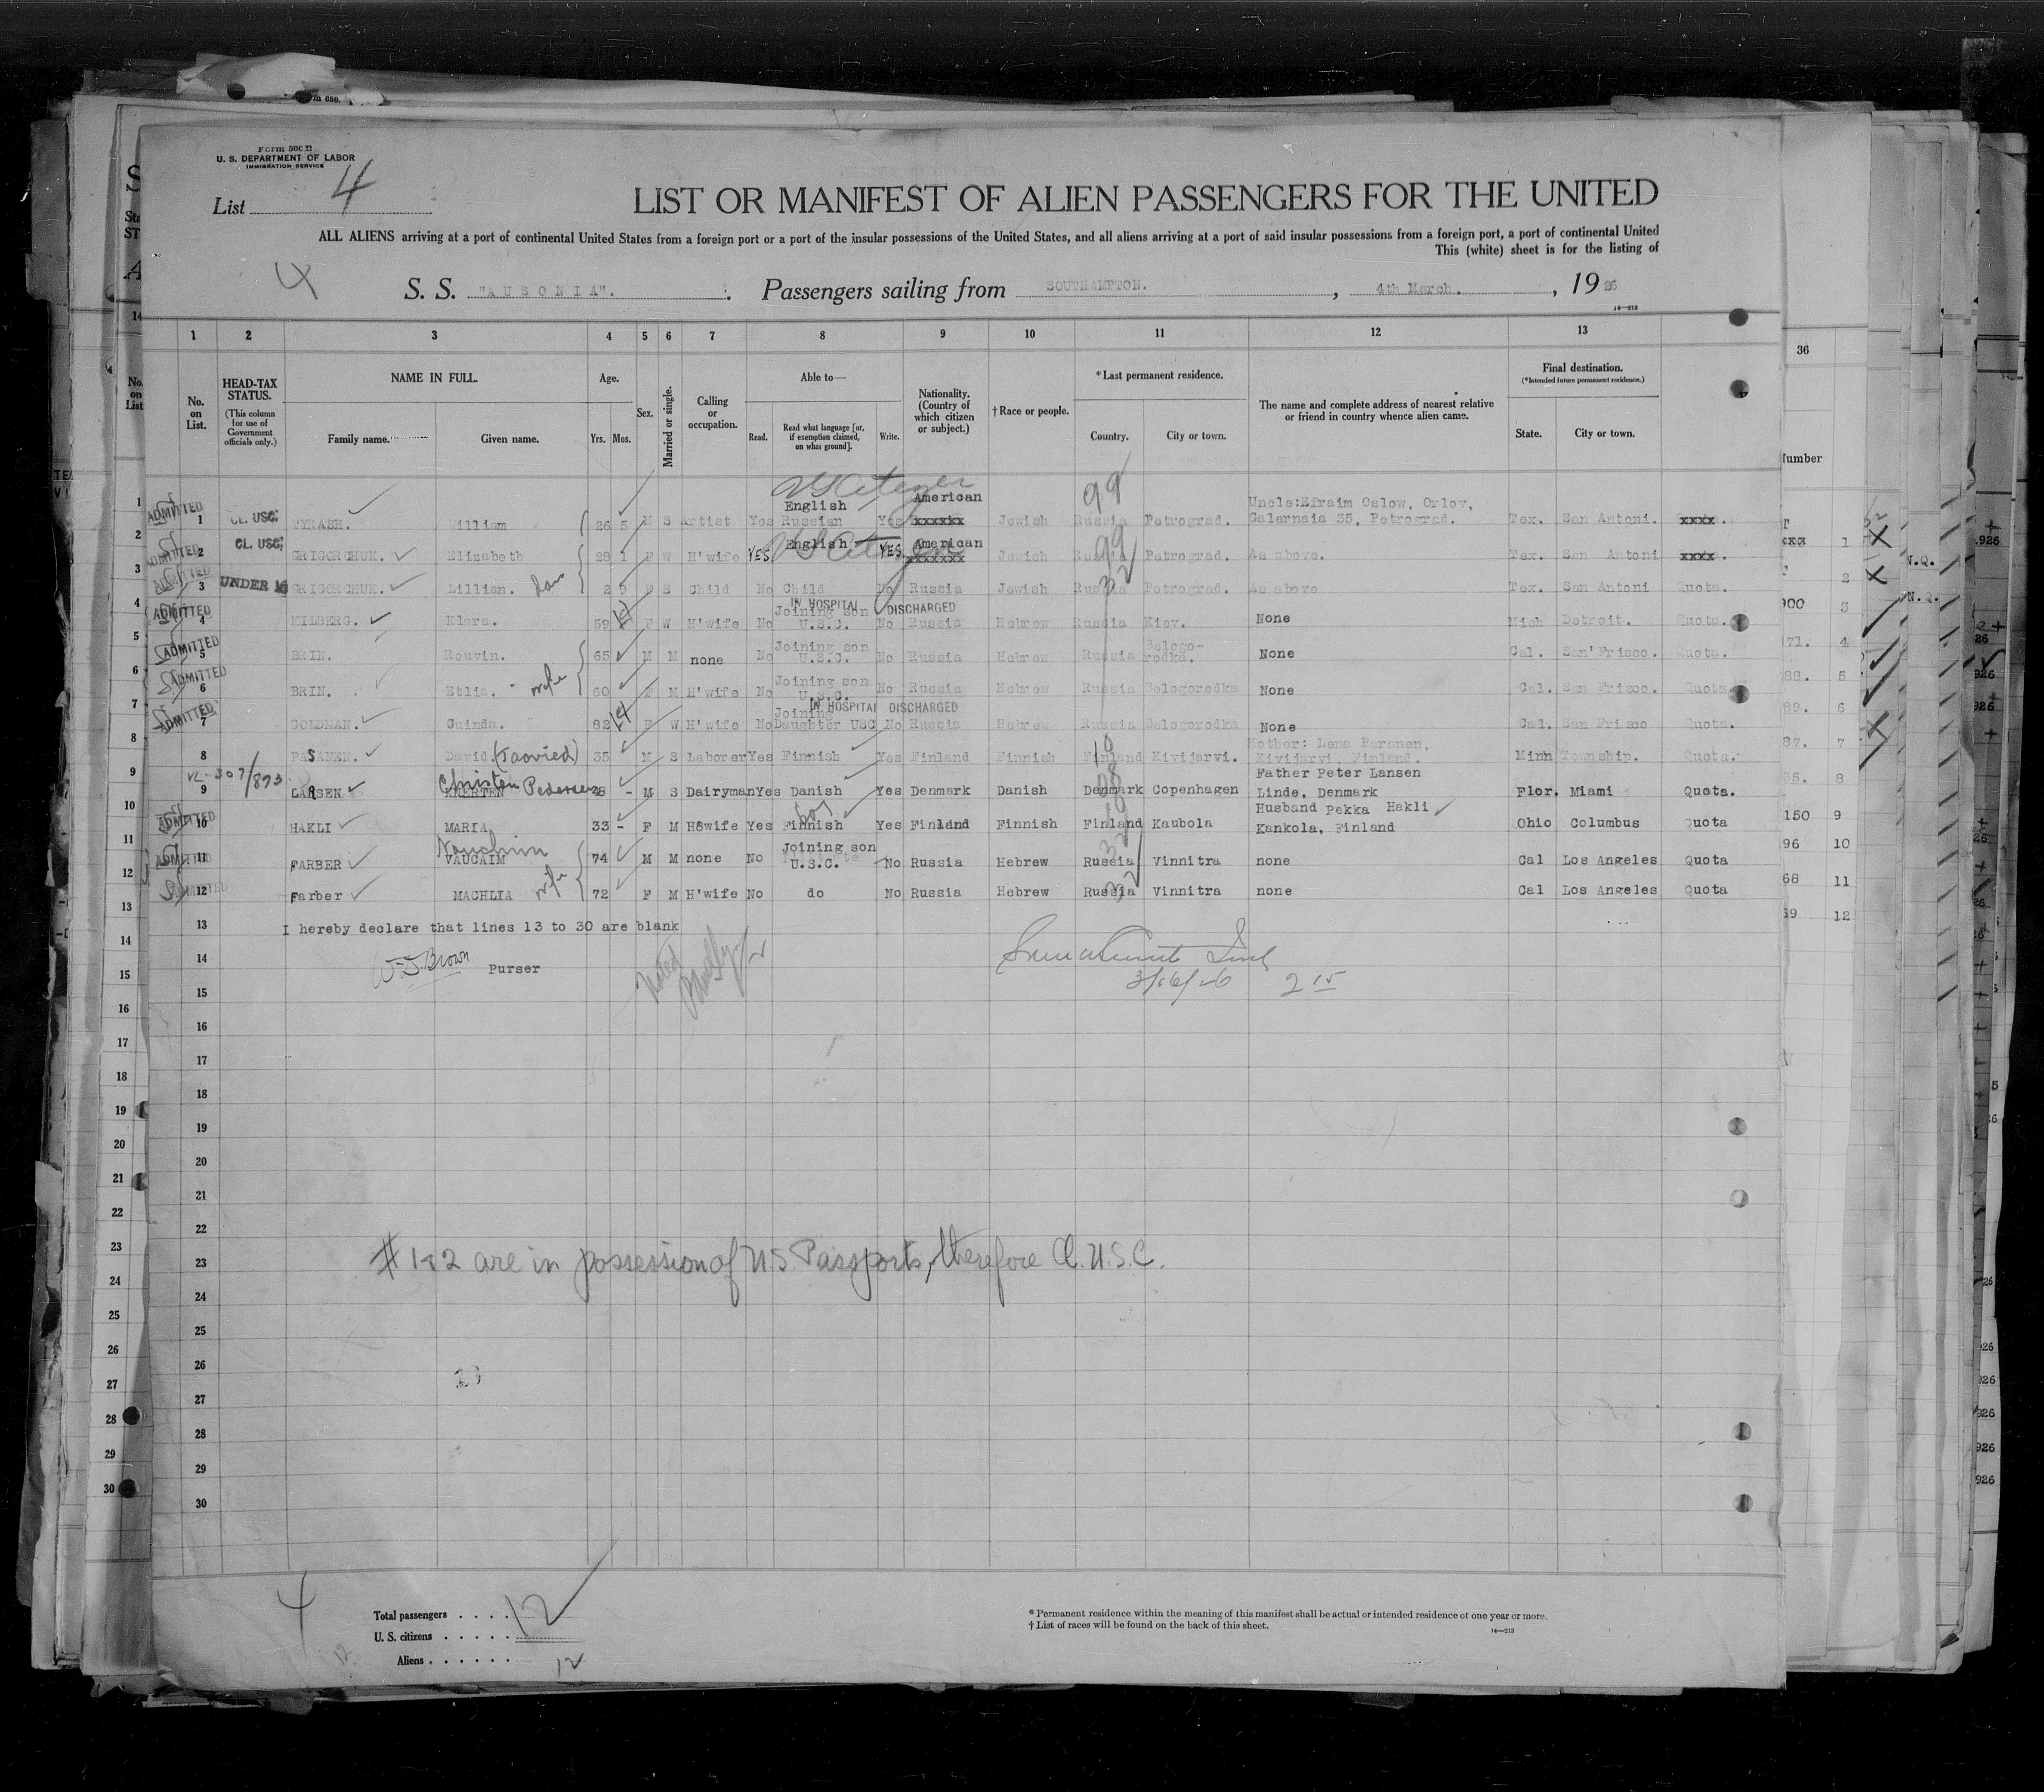 Form 500 B
U. S. DEPARTMENT OF LABOR
IMMIGRATION SERVICE
List 4
LIST OR MANIFEST OF ALIEN PASSENGERS FOR THE UNITED
ALL ALIENS arriving at a port of continental United States from a foreign port or a port of the insular possessions of the United States, and all aliens arriving at a port of said insular possessions from a foreign port, a port of continental United
This (white) sheet is for the listing of
4 S. S. "AUSONIA". Passengers sailing from SOUTHAMPTON. , 4th March. , 1926
14—213
1 2 3 4 5 6 7 8 9 10 11 12 13
No. on List.
HEAD-TAX STATUS.
(This column for use of Government officials only.)
NAME IN FULL.
Family name. Given name.
Age.
Yrs. Mos.
Sex.
Married or single.
Calling or occupation.
Able to—
Read. Read what language [or, if exemption claimed, on what ground]. Write.
Nationality. (Country of which citizen or subject.)
† Race or people.
* Last permanent residence.
Country. City or town.
The name and complete address of nearest relative or friend in country whence alien came.
Final destination.
(*Intended future permanent residence.)
State. City or town.
US Citizen
99
ADMITTED 1 CL. USC. TYRASH. William 26 5 M S Artist Yes English Russian Yes American xxxxxx Jewish Russia Petrograd. Uncle: Efraim Oslow, Orlov, Galernaia 35, Petrograd. Tex. San Antoni. xxxx
ADMITTED 2 CL. USC. GRIGORCHUK. Elizabeth 28 1 F W H'wife YES English US Citizen YES. American xxxxxxx Jewish Russia 99 Petrograd. As above. Tex. San Antoni xxxx.
ADMITTED 3 UNDER 16 GRIGORCHUK. Lillian. dau 2 9 F S Child No Child No Russia Jewish Russia 32 Petrograd. As above Tex. San Antoni Quota.
ADMITTED 4 MILBERG. Klara. 59 F W H'wife No IN HOSPITAL DISCHARGED Joining son U.S.C. No Russia Hebrew Russia Kiev. None Mich Detroit. Quota.
ADMITTED 5 BRIN. Rouvin. 65 M M none No Joining son U.S.C. No Russia Hebrew Russia Bologo-rodka. None Cal. San'Frisco. Quota.
ADMITTED 6 BRIN. Etlia. wife 60 F M H'wife No Joining son U.S.C. No Russia Hebrew Russia Bologorodka None Cal. San Frisco. Quota
ADMITTED 7 GOLDMAN. Guinda. 82 F W H'wife No IN HOSPITAL DISCHARGED Joining Daughter USC No Russia Hebrew Russia Bologorodka None Cal. San Frisco Quota.
8 PASANEN. David. (Taavied) 35 M S Laborer Yes Finnish Yes Finland Finnish Finland Kivijarvi. Mother: Lena Paranen, Kivijarvi, Finland. Minn Township. Quota.
9 LARSEN Christen Pedersen 28 - M S Dairyman Yes Danish Yes Denmark Danish Denmark Copenhagen Father Peter Lansen Linde, Denmark Flor. Miami Quota.
ADMITTED 10 HAKLI MARIA 33 - F M H8wife Yes Finnish Yes Finland Finnish Finland Kaubola Husband Pekka Hakli Kankola, Finland Ohio Columbus Quota
ADMITTED 11 FARBER Nauchim VAUCAIM 74 M M none No Joining son U.S.C. No Russia Hebrew Russia Vinnitra none Cal Los Angeles Quota
ADMITTED 12 Farber MACHLIA wife 72 F M H'wife No do No Russia Hebrew Russia 32 Vinnitra none Cal Los Angeles Quota
13 I hereby declare that lines 13 to 30 are blank
14 W. J. Brown Purser
3/16/26 2 15
15
16
17
18
19
20
21
22
23 # 1&2 are in possession of U.S. Passports, therefore Cl. U.S.C.
24
25
26
27
28
29
30
4
Total passengers . . . . 12
U. S. citizens . . . . .
Aliens . . . . . . 12
* Permanent residence within the meaning of this manifest shall be actual or intended residence of one year or more.
† List of races will be found on the back of this sheet.
14—213